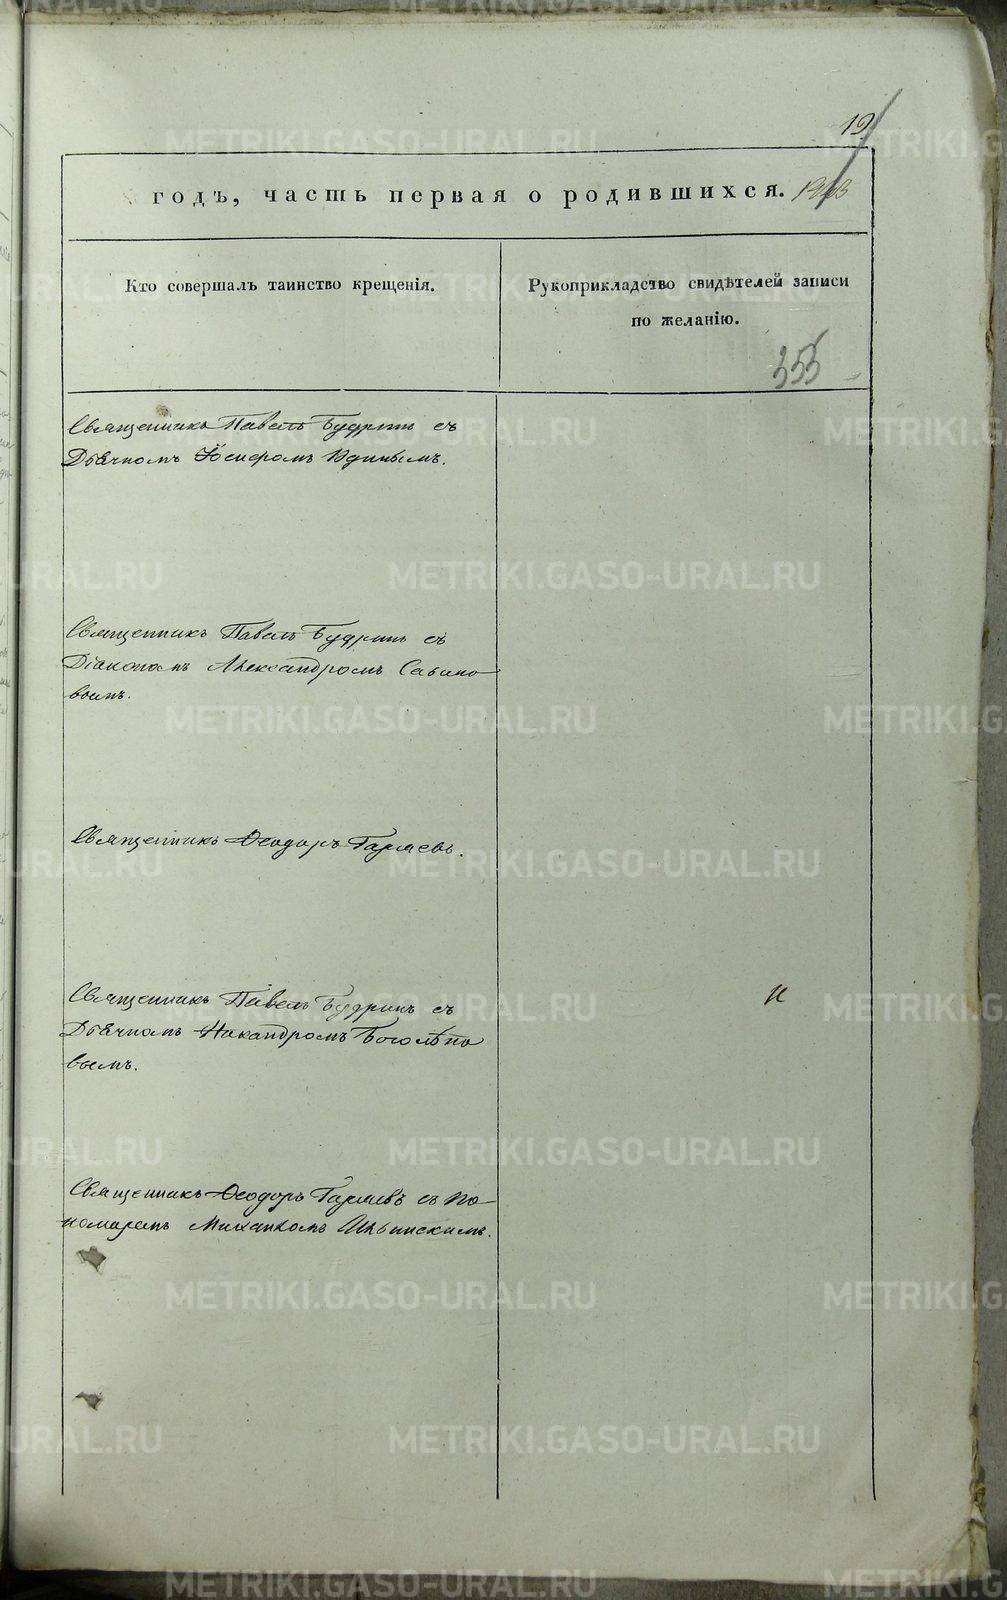 19
годъ, часть первая о родившихся.
Кто совершалъ таинство крещенія.
Рукоприкладство свидѣтелей записи
по желанію.
355
Священникъ Павелъ Будринъ съ
Дьячкомъ Іосифомъ Юдинымъ.
Священникъ Павелъ Будринъ съ
Діакономъ Александромъ Савино-
вымъ.
Священникъ Ѳеодоръ Гаряевъ.
Священникъ Павелъ Будринъ съ
Дьячкомъ Никандромъ Боголѣпо
вымъ.
Священникъ Ѳеодоръ Гаряевъ съ по-
номаремъ Михаиломъ Ильинскимъ.
METRIKI.GASO-URAL.RU